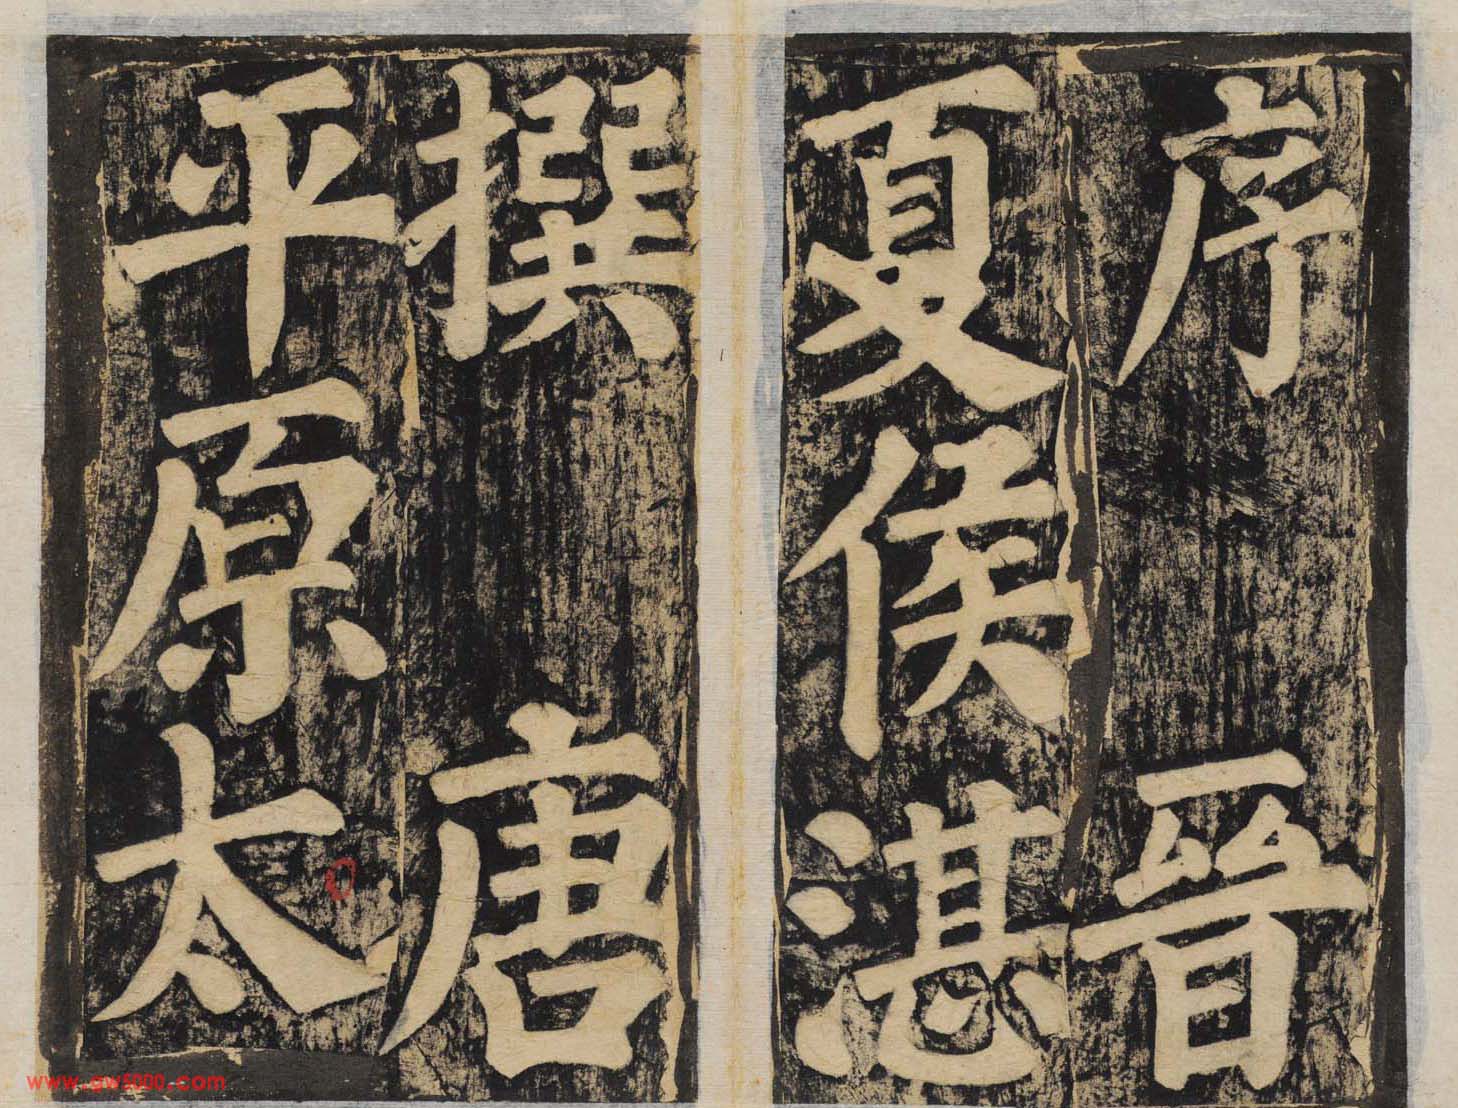 序 晉
夏侯湛
撰 唐
平原太
www.gw5000.com